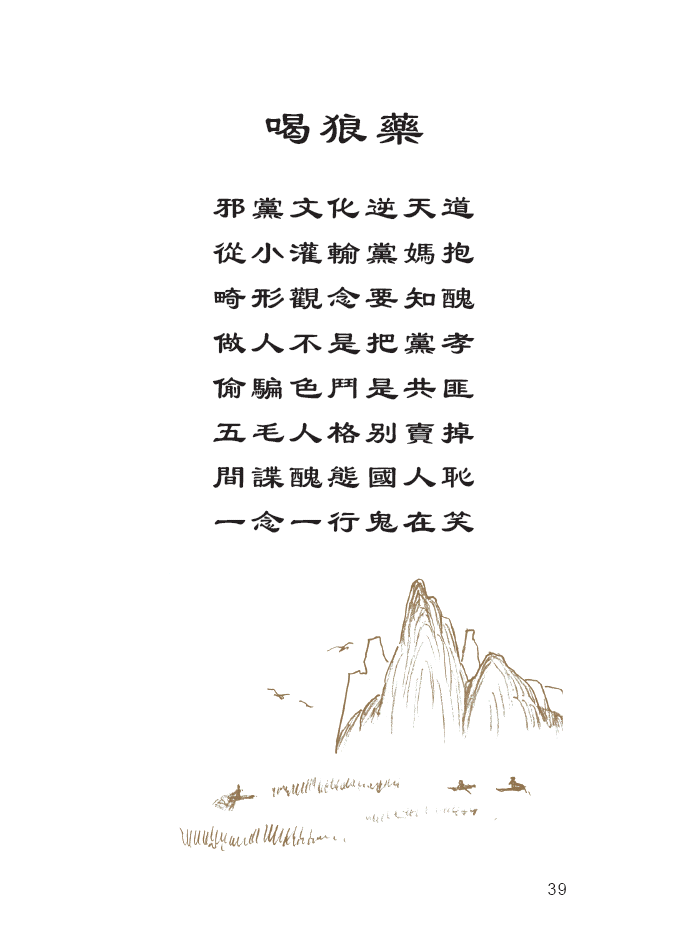 喝狼藥
邪黨文化逆天道
從小灌輸黨媽抱
畸形觀念要知醜
做人不是把黨孝
偷騙色鬥是共匪
五毛人格别賣掉
間諜醜態國人恥
一念一行鬼在笑
39